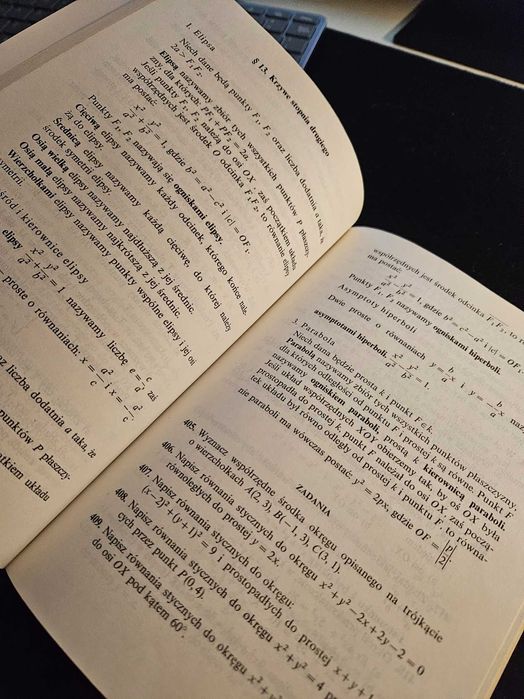 § 13. Krzywe stopnia drugiego
1. Elipsa
Niech dane będą punkty F₁, F₂ oraz liczba dodatnia a taka, że
2a > F₁F₂.
Elipsą nazywamy zbiór tych wszystkich punktów P płaszczy-
zny, dla których: PF₁ + PF₂ = 2a.
Jeśli punkty F₁, F₂ należą do osi OX, zaś początkiem układu
współrzędnych jest środek O odcinka F₁F₂, to równanie elipsy
ma postać:
x²/a² + y²/b² = 1, gdzie b² = a² − c² i |c| = OF₁.
Punkty F₁, F₂ nazywają się ogniskami elipsy.
Cięciwą elipsy nazywamy każdy odcinek, którego końce nale-
żą do elipsy.
Średnicą elipsy nazywamy każdą cięciwę, do której należy
środek symetrii elipsy.
Osią wielką elipsy nazywamy najdłuższą z jej średnic.
Osią małą elipsy nazywamy najkrótszą z jej średnic.
Wierzchołkami elipsy nazywamy punkty wspólne elipsy i jej osi
symetrii.
śród i kierownice elipsy
elipsy x²/a² + y²/b² = 1 nazywamy liczbę e = c/a, zaś
proste o równaniach: x = −a²/c i x = a²/c.
liczba dodatnia a taka, że
punktów P płaszczy-
układu
współrzędnych jest środek odcinka F₁F₂, to
ma postać:
x²/a² − y²/b² = 1, gdzie b² = c² − a² i |c| = OF₁.
Punkty F₁, F₂ nazywamy ogniskami hiperboli.
Asymptoty hiperboli
Dwie proste o równaniach y = b/a x i y = −b/a x
asymptotami hiperboli x²/a² − y²/b² = 1.
3. Parabola
Niech dana będzie prosta k i punkt F ∉ k.
Parabolą nazywamy zbiór tych wszystkich punktów płaszczyzny,
dla których odległości od punktu F i prostej k są równe. Punkt F
nazywamy ogniskiem paraboli, prostą k kierownicą paraboli.
Jeśli układ współrzędnych XOY obierzemy tak, by oś OX była
prostopadła do prostej k, punkt F należał do osi OX, zaś począ-
tek układu był równo odległy od prostej k i punktu F, to równa-
nie paraboli ma wówczas postać: y² = 2px, gdzie OF = |p/2|.
ZADANIA
405. Wyznacz współrzędne środka okręgu opisanego na trójkącie
o wierzchołkach A(2, 3), B(−1, 3), C(3, 1).
406. Napisz równania stycznych do okręgu x² + y² − 2x + 2y − 2 = 0
równoległych do prostej y = 2x.
407. Napisz równania stycznych do okręgu:
(x − 2)² + (y + 1)² = 9 i prostopadłych do prostej x + y +
408. Napisz równania stycznych do okręgu x² + y² = 4
cych przez punkt P(0, 4).
409. Napisz równania stycznych do okręgu x² + y²
do osi OX pod kątem 60°.